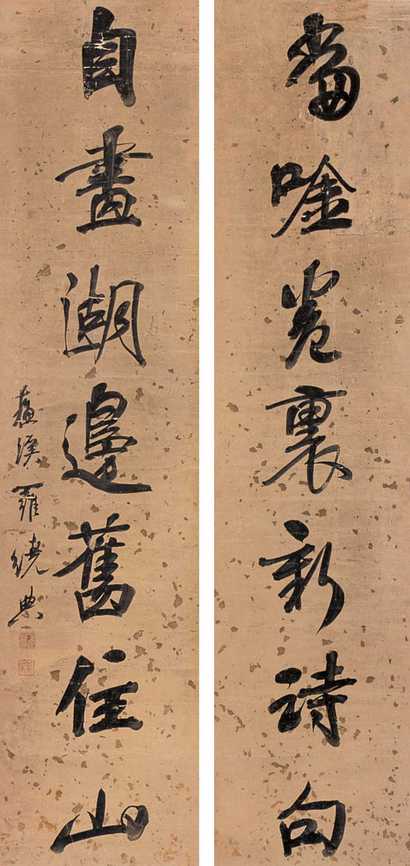 當唫卷裏新詩句
自畫湖邊舊住山
蘇溪羅繞典